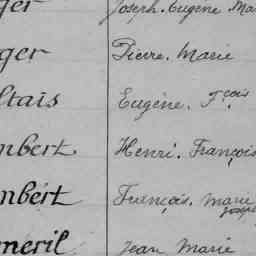 ger Joseph. Eugène Ma
ger Pierre. Marie
ltais Eugène. Fçois
mbert Henri. François
mbert François. Marie Joseph
meril Jean Marie